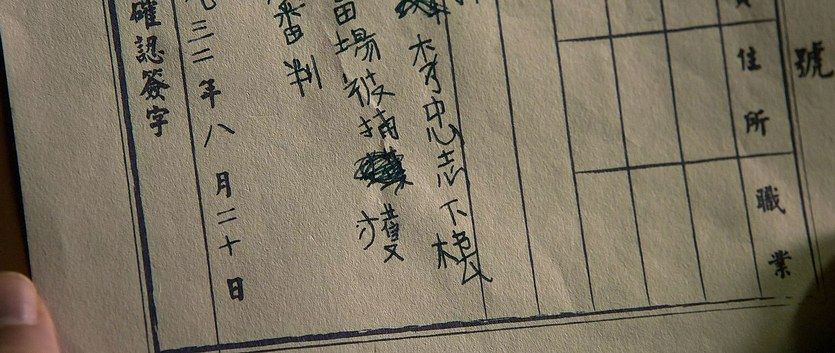 號
住所
職業
李忠志下樓
當場被捕獲
審判
九三二年八月二十日
確認簽字